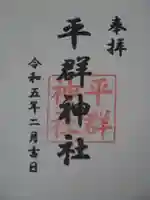 奉拝
平群神社
平群神社
令和五年二月吉日